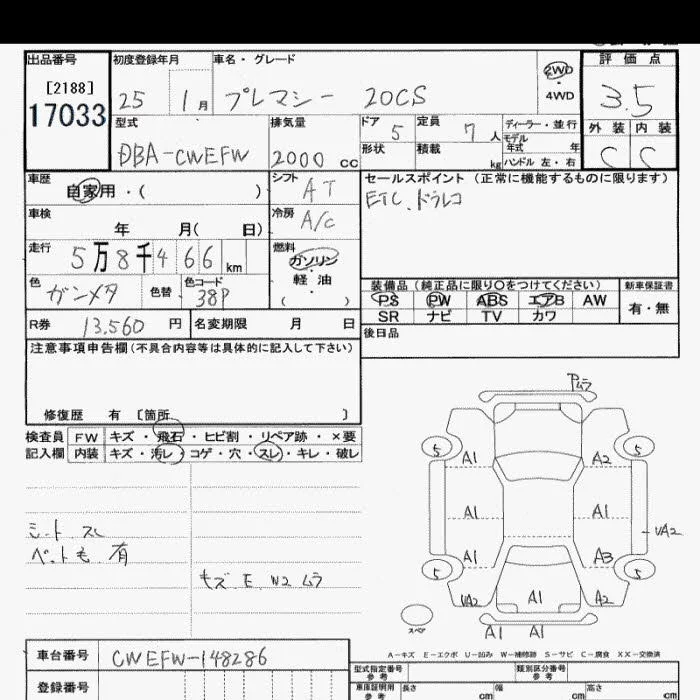 出品番号 初度登録年月 車名・グレード 2WD ・ 4WD 評価点
[2188]
17033 25 1月 プレマシー 20CS 3.5
型式 排気量 ドア 定員 ディーラー・並行 外装 内装
DBA-CWEFW 2000 cc 5 7人 モデル年式 年 C C
形状 積載 kg ハンドル 左・右
車歴 シフト セールスポイント (正常に機能するものに限ります)
自家用・( ) AT ETC.ドラレコ
車検 冷房
年 月( 日) A/C
走行 燃料
5万8千466 km ガソリン ・ 軽油 ( )
色 色替 色コード 装備品 (純正品に限り○をつけてください) 新車保証書
ガンメタ 38P PS PW ABS エアB AW 有・無
SR ナビ TV カワ
R券 13.560 円 名変期限 月 日 後日品
注意事項申告欄(不具合内容等は具体的に記入して下さい)
修復歴 有 〔箇所 〕
検査員 FW キズ・飛石・ヒビ割・リペア跡・×要
記入欄 内装 キズ・汚レ・コゲ・穴・スレ・キレ・破レ
シート スレ
ペットも 有
キズ E W2 ムラ
Pムラ
5 5
A1 A2
A1 A1
VA2
A1 A3
5 5
VA2 A1 A2
スペア A1 A1
A-キズ E-エクボ U-凹み W-補修跡 S-サビ C-腐食 XX-交換済
車台番号 CWEFW-148286 型式指定番号 参考 類別区分番号 参考
登録番号 車庫証明用 参考 長さ cm 幅 cm 高さ cm